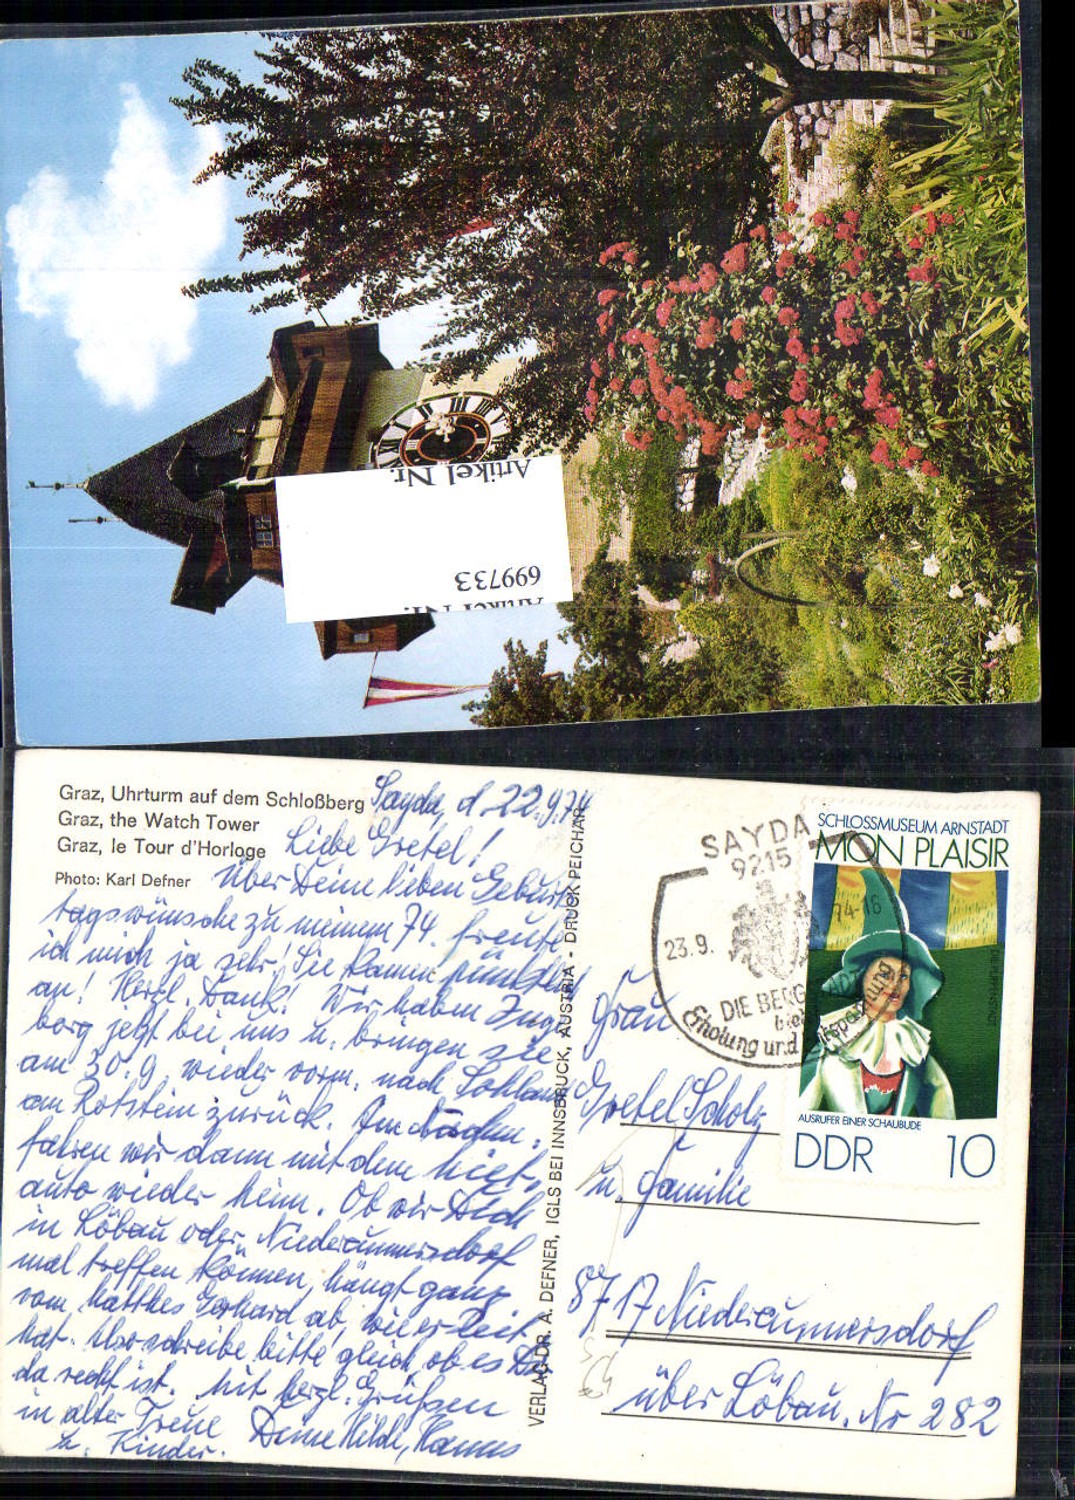 Artikel Nr.
699733
Artikel Nr.
Graz, Uhrturm auf dem Schloßberg
Graz, the Watch Tower
Graz, le Tour d'Horloge
Photo: Karl Defner
Sayda, d. 22.9.74
Liebe Gretel!
Über Deine lieben Geburts
tagswünsche zu meinem 74. freute
ich mich ja sehr! Sie kamen pünktlich
an! Herzl. Dank! Wir haben Inge
borg jetzt bei uns u. bringen sie
am 30.9. wieder vorm. nach
am Rotstein zurück. Am
fahren wir dann mit dem Miet
auto wieder heim. Ob wir Dich
in Löbau oder Niedercunnersdorf
mal treffen können, hängt ganz
vom Matthes Gerhard ab, wie er Zeit
hat. Also schreibe bitte gleich, ob es Dir
da recht ist. Mit herzl. Grüßen
in alter Treue Deine Hilde, Hannes
u. Kinder.
VERLAG DR. A. DEFNER, IGLS BEI INNSBRUCK, AUSTRIA - DRUCK PEICHÄR
SAYDA
9215
23.9. 74-16
DIE BERG
bietet
Erholung und Entspannung
SCHLOSSMUSEUM ARNSTADT
MON PLAISIR
AUSRUFER EINER SCHAUBUDE
DDR 10
Frau
Gretel Scholz
u. Familie
8717 Niedercunnersdorf
über Löbau, Nr 282